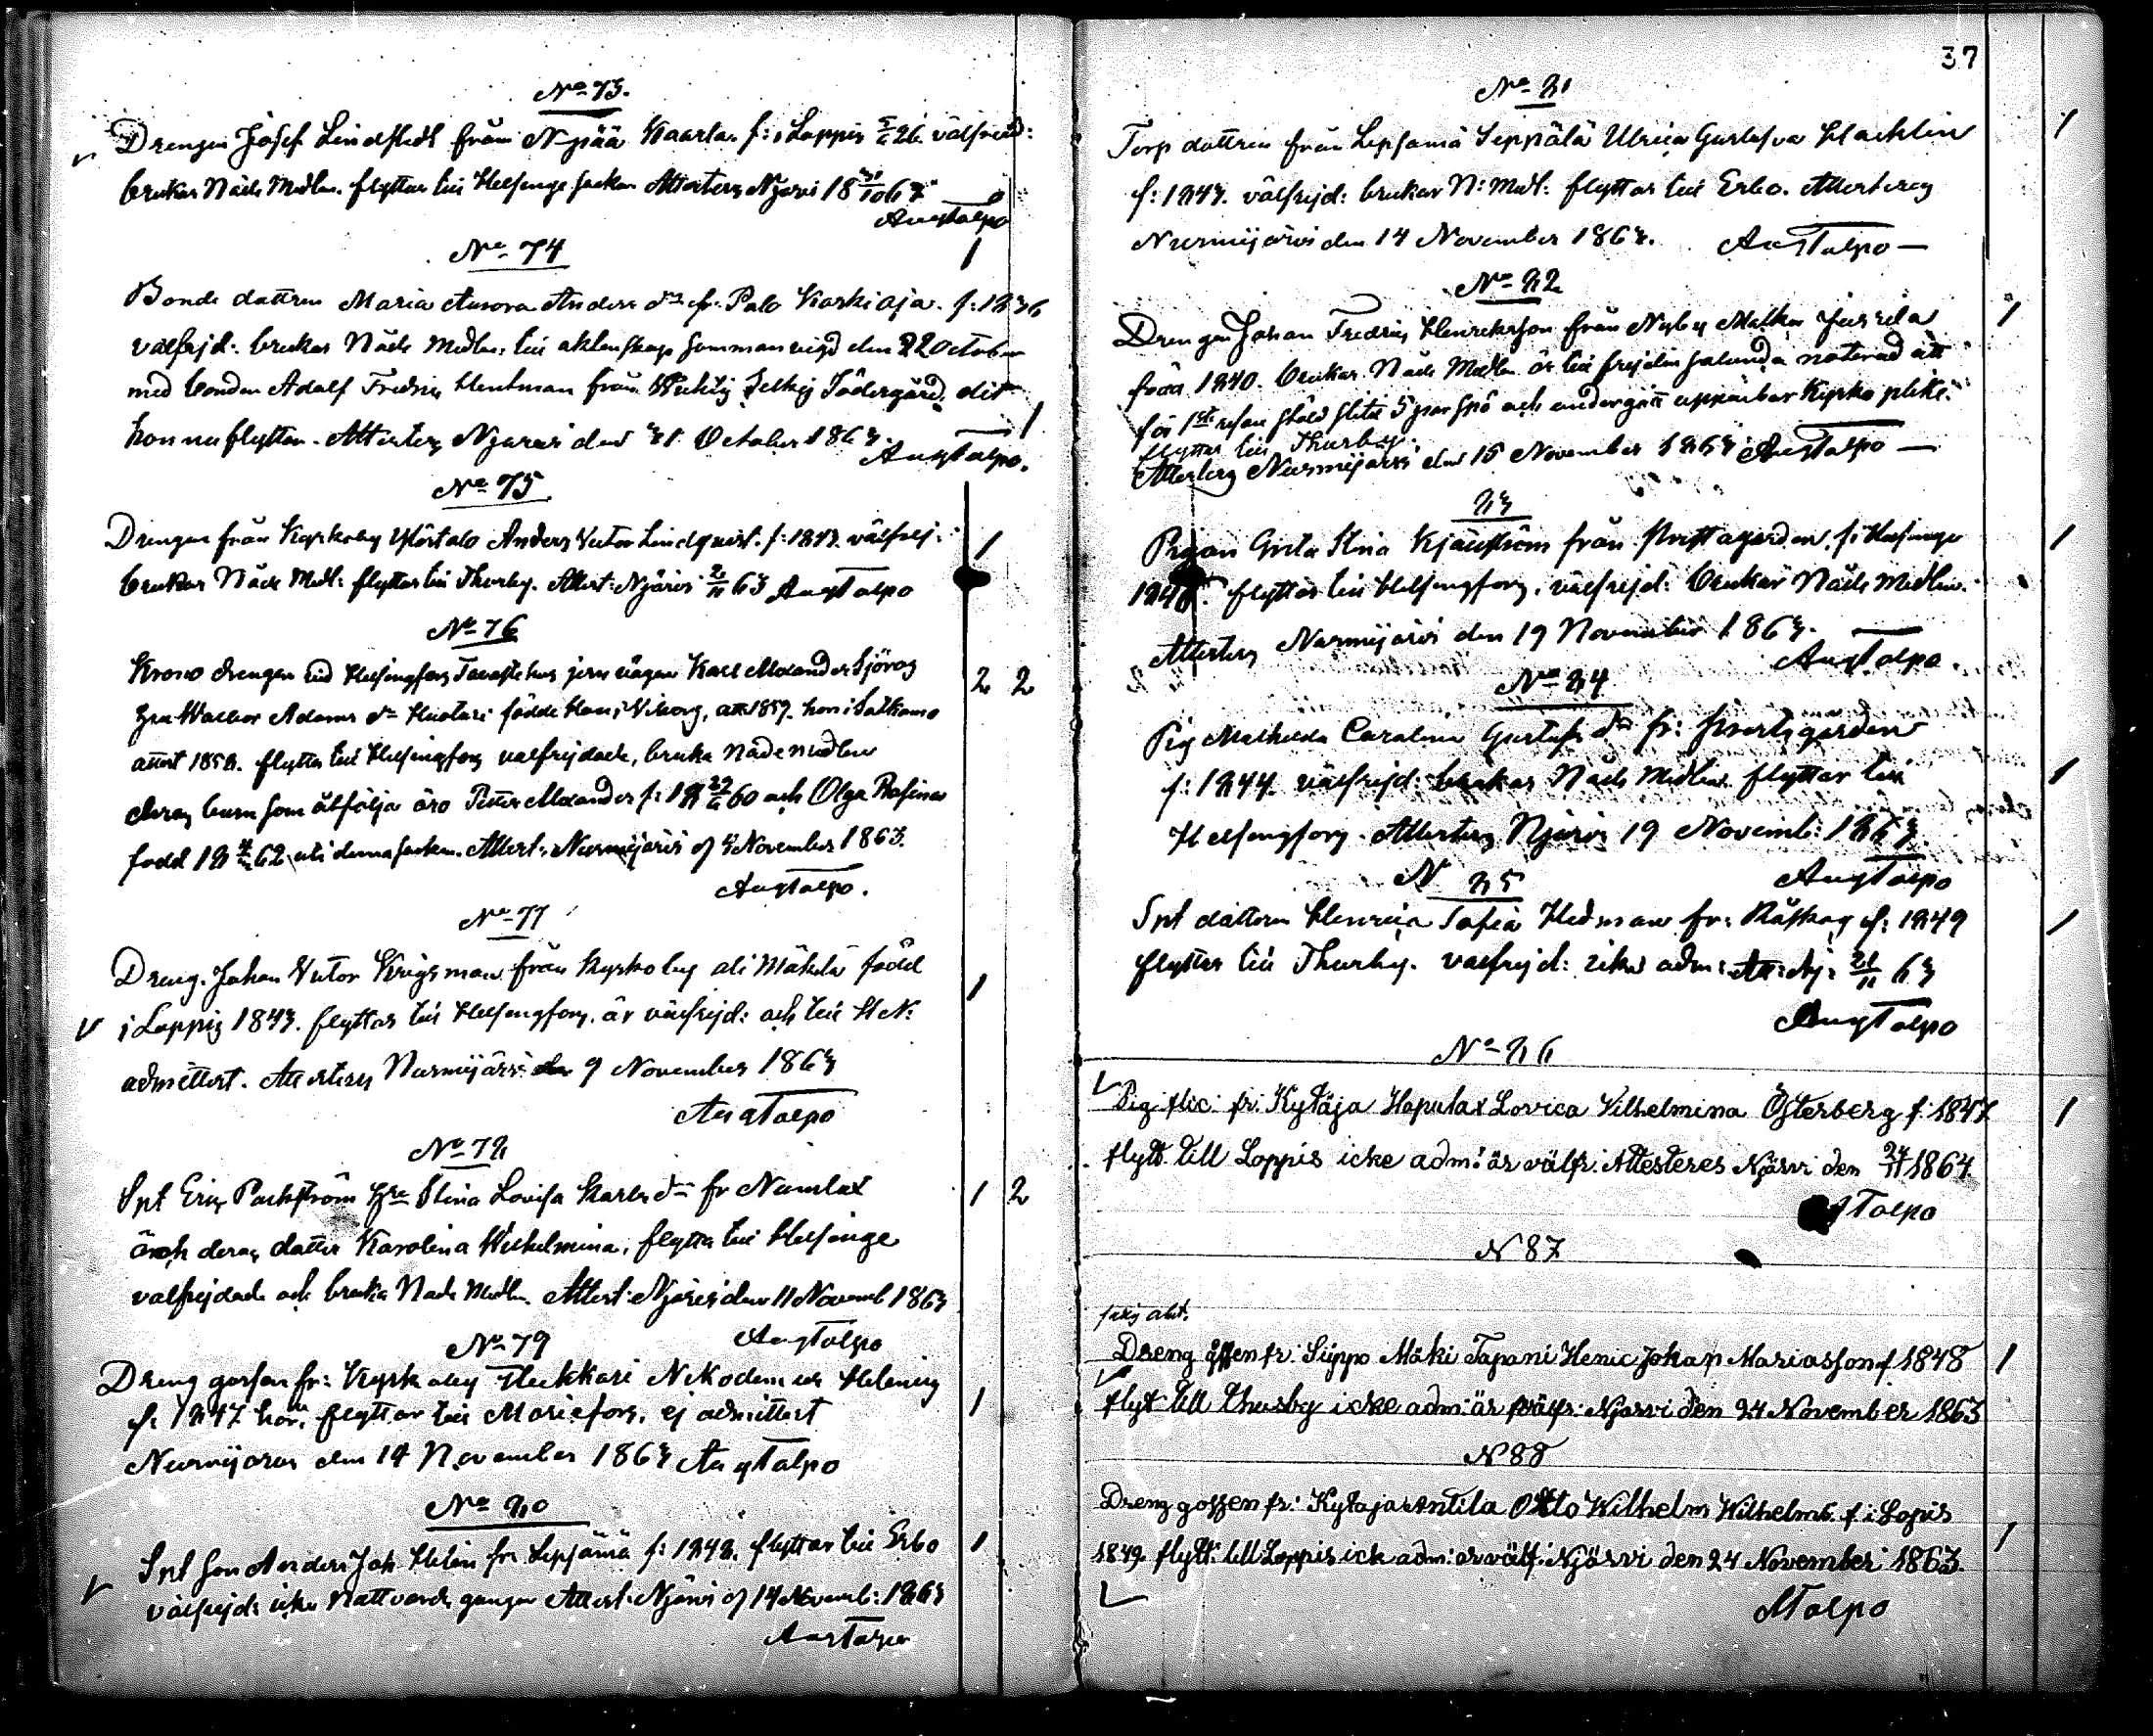 No 73.
Drengen Josef Lindstedt från Npää Kaarla. f: i Loppis 5/6 26 välfrejd:
brukar Nåde Medlen. flyttar till Helsinge socken Attesteras Njärvi 18 31/10 63
Aug Talpo
No 74
Bonde dottren Maria Aurora Anders dr fr. Palo Karkioja. f: 1836
välfrejd: brukar Nåde Medlen: till äktenskap sammanvigd den 22 October
med bonden Adolf Fredric Hentman från Södergård, dit
hon nu flyttar. Attesteras Njärvi den 31 October 1863.
Aug Talpo.
No 75
Drengen från Kyrkoby Ylörtalo Anders Victor Lindqvist. f: 1843. välfrej:
brukar Nåde Medl: flyttar till Thusby. Attest: Njärvi 2/11 63 Aug Talpo
No 76
Krono drengen vid Helsingfors Tavastehus jernvägen Karl Alexander Sjöroos
hru Walbor Adams dr Huotari födde Han i Viborg, hon i Sotkamo
flytta till Helsingfors välfrejdade, bruka Nåde medlen
deras barn som åtfölja äro Petter Alexander f: 18 27/6 60 och Olga Rosina
född 18 62 uti denna socken. Attest: Nurmijärvi af 3 November 1863.
Aug Talpo.
No 77
Dreng. Johan Victor Krigsman från Kyrkoby ali Mäkelä född
i Loppis 1843. flyttar till Helsingfors. är välfrejd: och till H N:
admittert. Attesteras Nurmijärvi den 9 November 1863
Aug Talpo
No 78
Spt Eric Packström hru Stina Lovisa Karls dr fr Numlax
och deras dotter Karolina Wilhelmina, flytta till Helsinge
välfrejdade och bruka Nåde Medlen. Attest: Njärvi den 11 Novemb 1863
Aug Talpo
No 79
Dreng gossen fr: Kyrkoby Heikkari Nikodemus Helenius
f: 1847 här. flyttar till Mariefors, ej admittert
Nurmijärvi den 14 November 1863 Aug Talpo
No 80
Spt son Anders Joh Helin fr Lepsämä f: 1848. flyttar till Esbo
välfrejd: icke Nattvards gången Attest: Njärvi af 14 Novemb: 1863
Aug Talpo
37
No 81
Torp dottren från Lepsämä Seppälä Ulrica Gustafva Hacklin
f: 1843. välfrejd: brukar N: Medl: flyttar till Esbo. Attesteras
Nurmijärvi den 14 November 1863. Aug Talpo
No 82
Drengen Johan Fredric Henriksson från Nyby Matku Jussila
född 1840. brukar Nåde Medlen är till frejden sålunda noterad att
för 1sta resan stöld slitit 5 par spö och undergått uppenbar Kyrko plikt.
flyttar till Thusby.
Attesteras Nurmijärvi den 15 November 1863 Aug Talpo
83
Pigan Greta Stina Kjällström från Prostagården, f: i Helsinge
1848. flyttar till Helsingfors. välfrejd: brukar Nåde Medlen.
Attesteras Nurmijärvi den 19 November 1863.
Aug Talpo.
No 84
Pig Mathilda Carolina Gustafs dr fr: Prostgården
f: 1844. välfrejd: brukar Nåde Medlen flyttar till
Helsingfors. Attesteras Njärvi 19 Novemb: 1863.
Aug Talpo
N 85
Spt dottren Henrica Sofia Hedman fr: Råskog f: 1849
flyttar till Thusby. välfrejd: icke adm: Att: Nj: 21/11 63
Aug Talpo
No 86
Pig flic: fr: Kytäja Haputax Lovica Vilhelmina Österberg f: 1847
flytt. till Loppis icke adm: är välfr: Attesteres Njärvi den 24/11 1863.
A Talpo
N 87
frejd akt.
Dreng gossen fr: Siippo Mäki Tapani Henric Johan Mariasson f 1848
flytt till Thusby icke adm: är välfr: Njärvi den 24 November 1863
N 88
Dreng gossen fr: Kytäja Antila Otto Wilhelm Wilhelms. f i Lopis
1849 flytt: till Loppis ick adm: är välf: Njärvi den 24 November 1863.
A Talpo